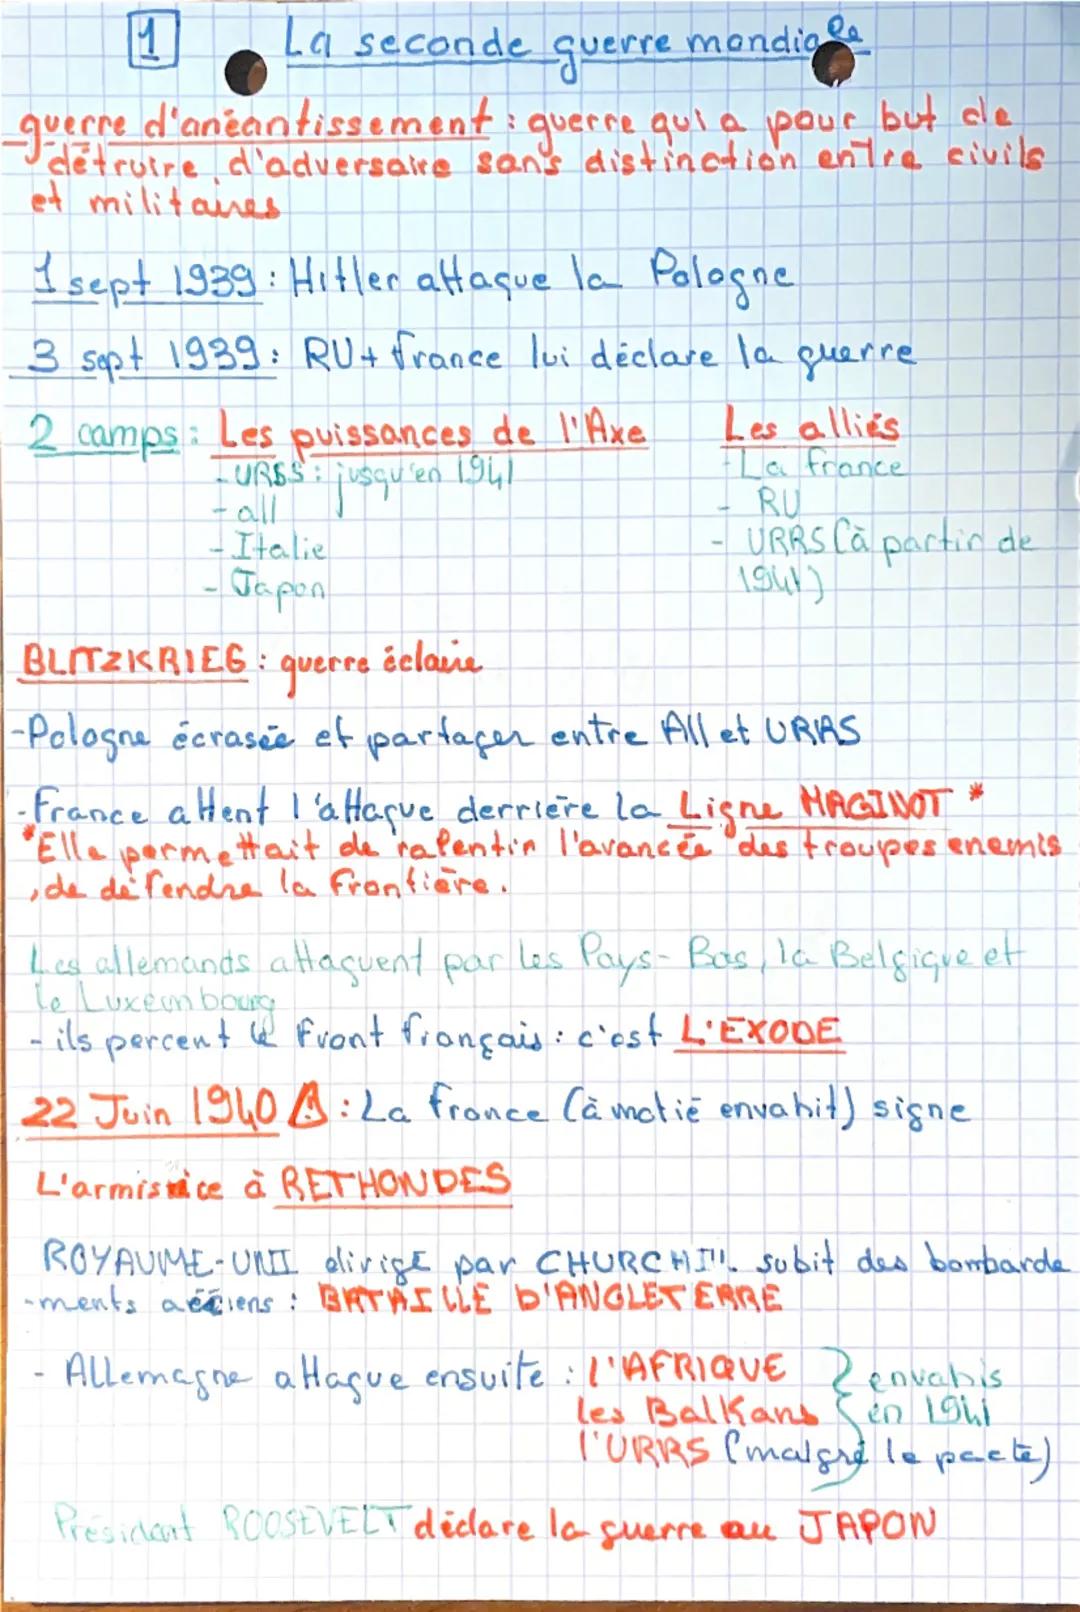 1 La seconde guerre mondiale
guerre d'anéantissement : guerre qui a pour but de
détruire d'adversaire sans distinction entre civils
et militaires
1 sept 1939 : Hitler attaque la Pologne
3 sept 1939 : RU + france lui déclare la guerre
2 camps : Les puissances de l'Axe Les alliés
- URSS : jusqu'en 1941 - La france
- all - RU
- Italie - URRS (à partir de
- Japon 1941)
BLITZKRIEG : guerre éclaire
- Pologne écrasée et partager entre All et URRS
- France attent l'attaque derrière la Ligne MAGINOT *
* Elle permettait de ralentir l'avancée des troupes enemis
, de défendre la frontière.
Les allemands attaquent par les Pays-Bas, la Belgique et
le Luxembourg
- ils percent le front français : c'est L'EXODE
22 Juin 1940 ⚠ : La france (à motié envahit) signe
L'armistice à RETHONDES
ROYAUME-UNI dirigé par CHURCHILL subit des bombarde
-ments aériens : BATAILLE D'ANGLETERRE
- Allemagne attaque ensuite : l'AFRIQUE } envahis
les Balkans } en 1941
l'URRS (malgré le pacte)
Président ROOSEVELT déclare la guerre au JAPON